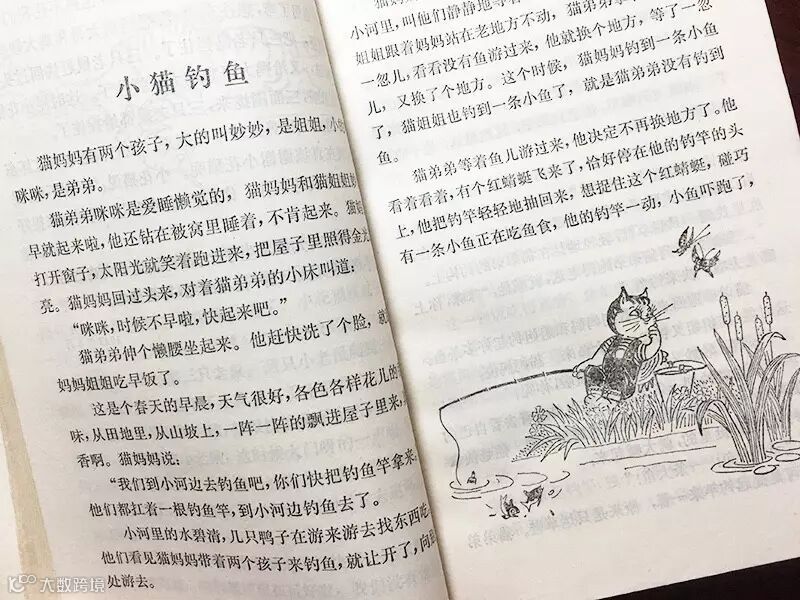 小猫钓鱼
猫妈妈有两个孩子，大的叫妙妙，是姐姐，小
咪咪，是弟弟。
猫弟弟咪咪是爱睡懒觉的，猫妈妈和猫姐姐
早就起来啦，他还钻在被窝里睡着，不肯起来。猫
打开窗子，太阳光就笑着跑进来，把屋子里照得金光
亮。猫妈妈回过头来，对着猫弟弟的小床叫道：
“咪咪，时候不早啦，快起来吧。”
猫弟弟伸个懒腰坐起来。他赶快洗了个脸，就
妈妈姐姐吃早饭了。
这是个春天的早晨，天气很好，各色各样花儿的
味，从田地里，从山坡上，一阵一阵的飘进屋子里来，
香啊。猫妈妈说：
“我们到小河边去钓鱼吧，你们快把钓鱼竿拿来
他们都扛着一根钓鱼竿，到小河边钓鱼去了。
小河里的水碧清，几只鸭子在游来游去找东西吃
他们看见猫妈妈带着两个孩子来钓鱼，就让开了，向
处游去。
小河里，叫他们静静地等
姐姐跟着妈妈站在老地方不动，猫弟弟
一忽儿，看看没有鱼游过来，他就换个地方，等了一忽
儿，又换了个地方。这个时候，猫妈妈钓到一条小鱼
了，猫姐姐也钓到一条小鱼了，就是猫弟弟没有钓到
鱼。
猫弟弟等着鱼儿游过来，他决定不再换地方了。他
看着看着，有个红蜻蜓飞来了，恰好停在他的钓竿的头
上，他把钓竿轻轻地抽回来，想捉住这个红蜻蜓，碰巧
有一条小鱼正在吃鱼食，他的钓竿一动，小鱼吓跑了，
大数跨境